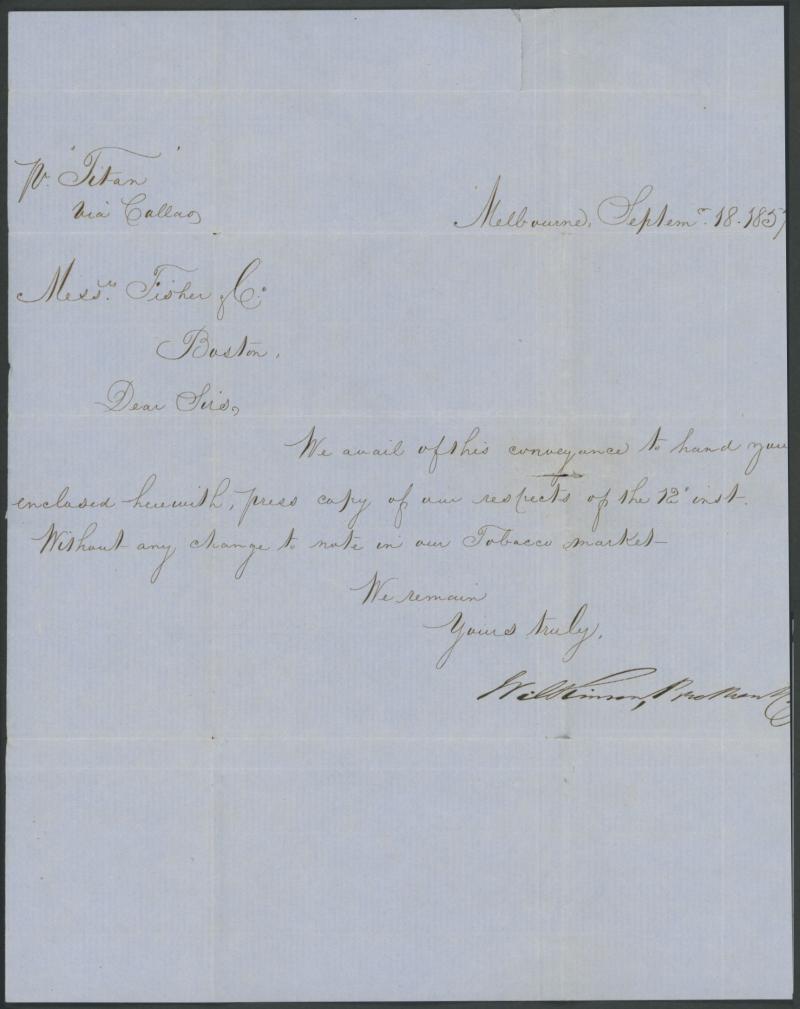 pr. "Titan"
via Callao,
Melbourne, Septemr. 18. 1857
Messrs. Fisher & Co.
Boston.
Dear Sirs,
We avail of this conveyance to hand you
enclosed herewith, press copy of our respects of the 12" inst.
Without any change to note in our Tobacco market—
We remain
Yours truly,
Wilkinson, Brothers & Co